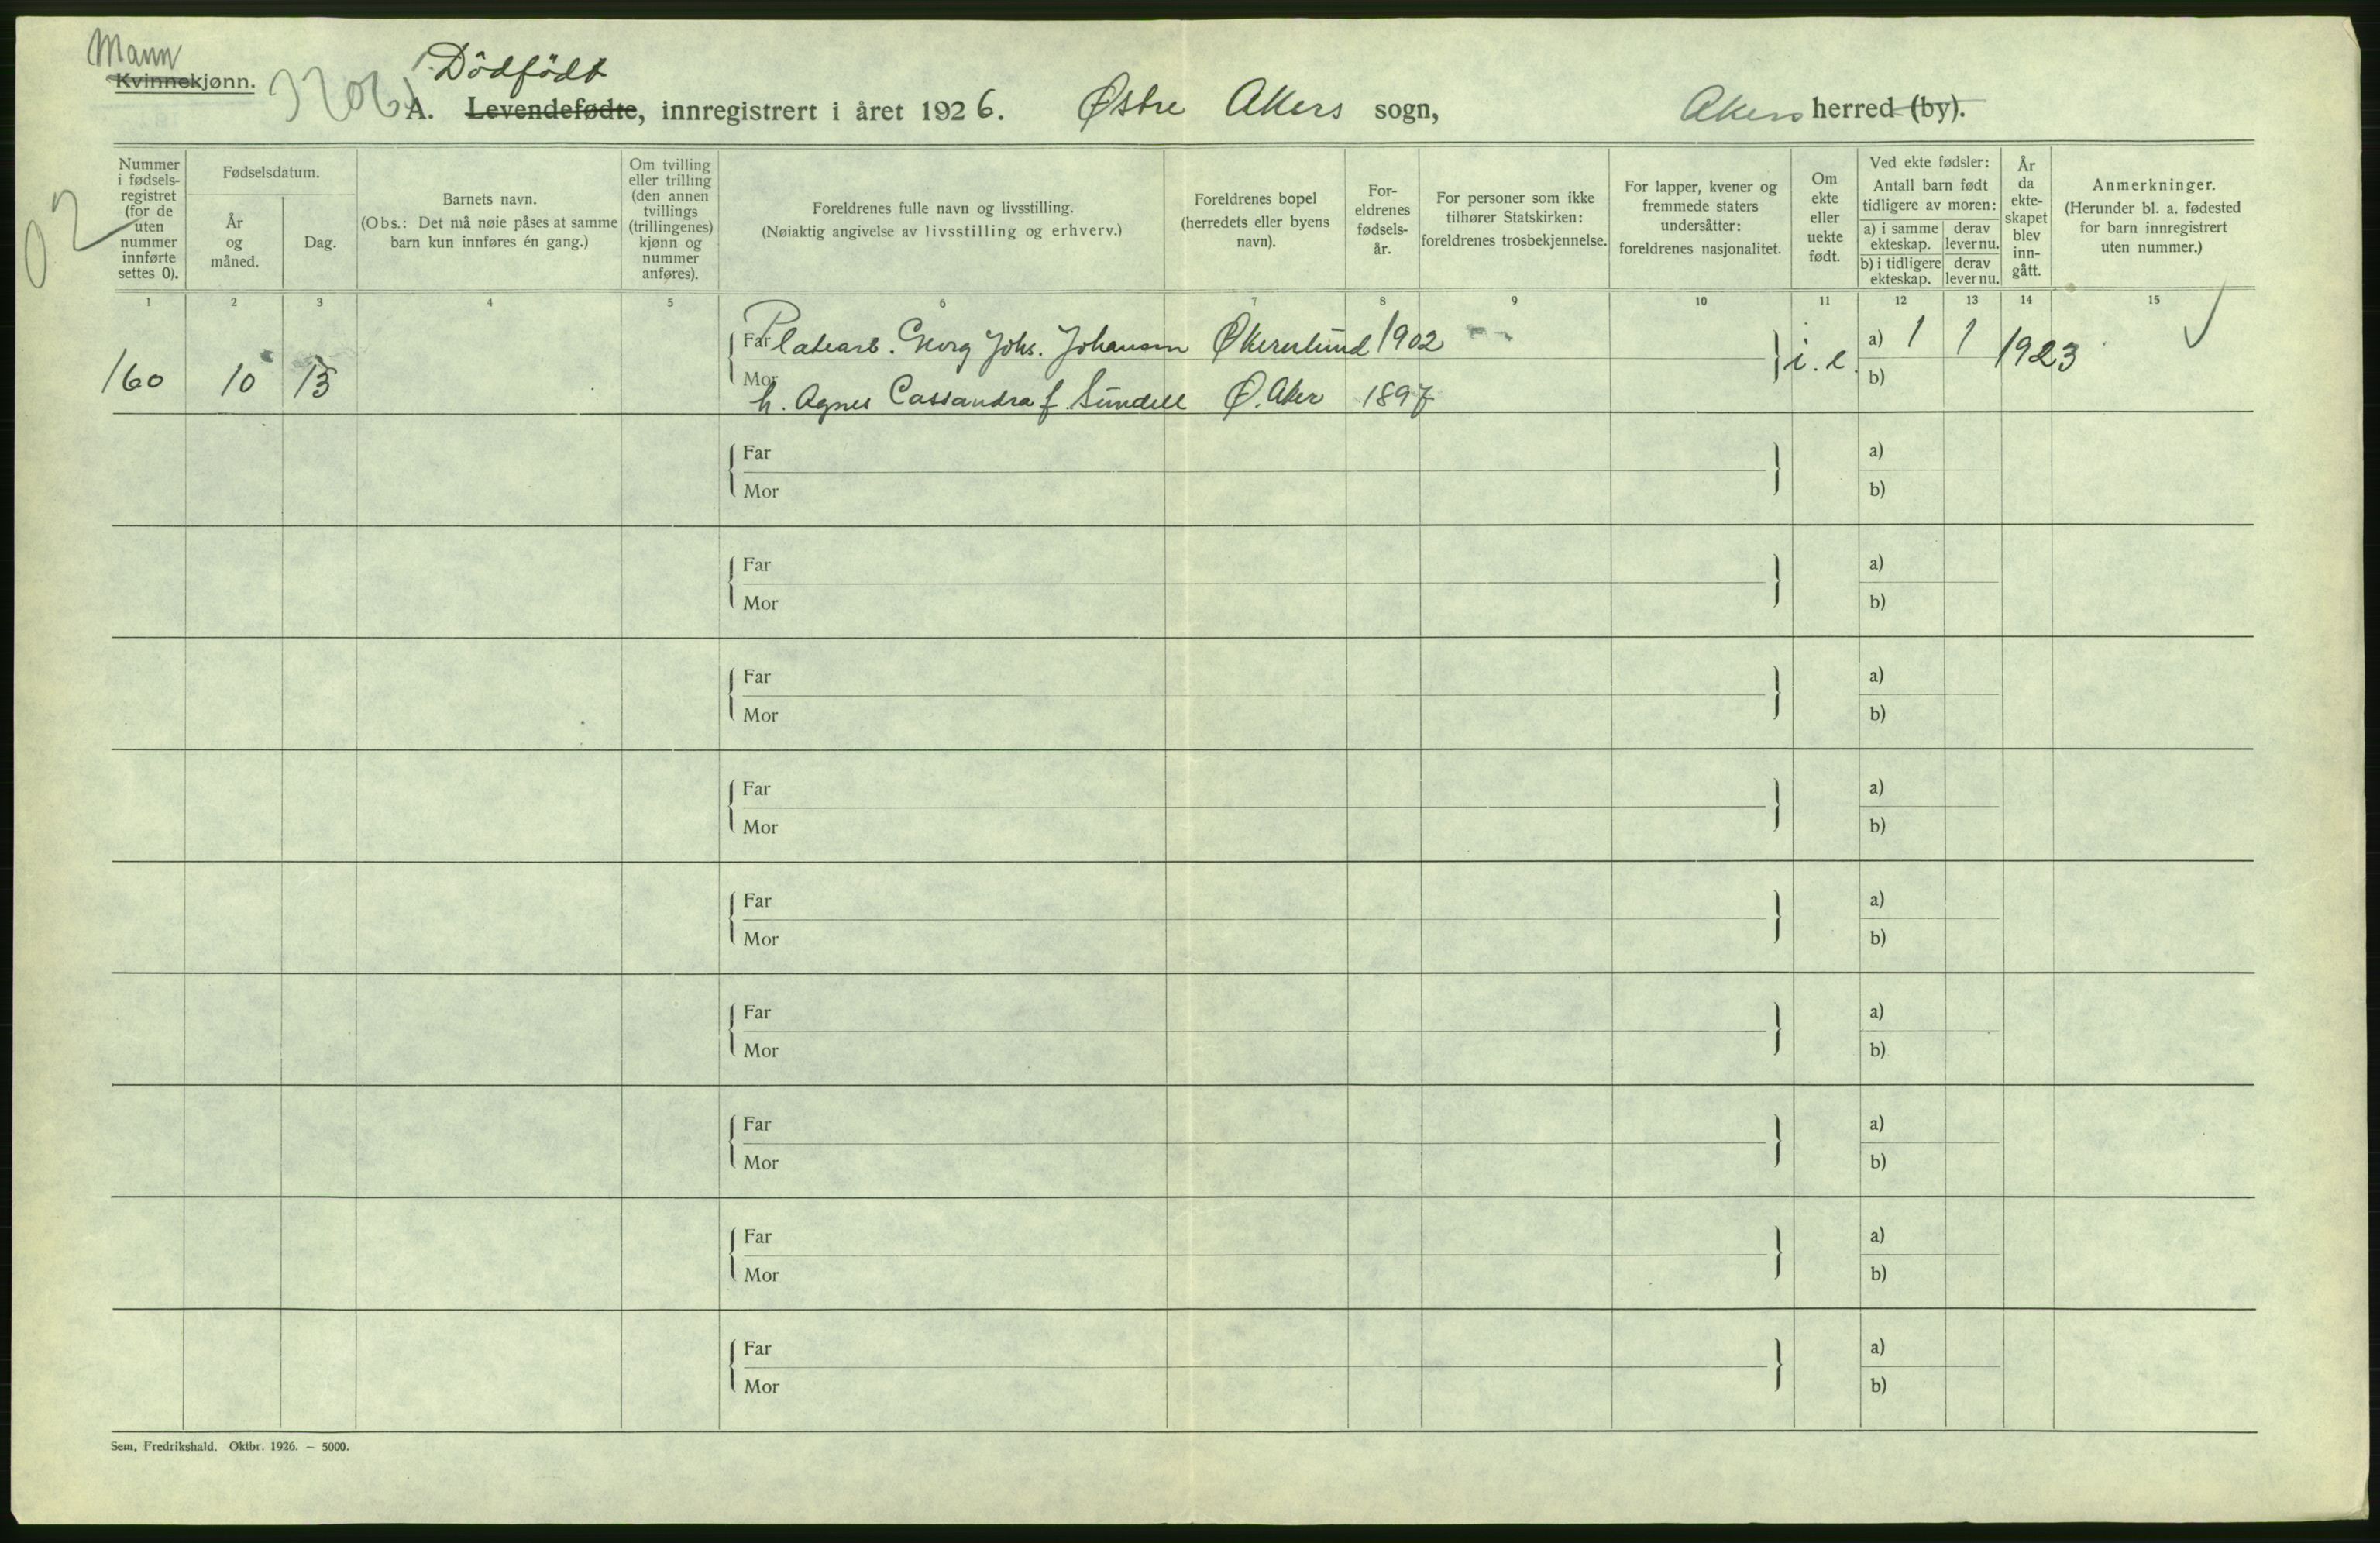 Mann
Kvinnekjønn.
Dödfödt
A. Levendefødte, innregistrert i året 1926. Østre Akers sogn, Akers herred (by).
Nummer i fødsels- registret (for de uten nummer innførte settes 0).
Fødselsdatum.
År og måned.
Dag.
Barnets navn.
(Obs.: Det må nøie påses at samme barn kun innføres én gang.)
Om tvilling eller trilling (den annen tvillings (trillingenes) kjønn og nummer anføres).
Foreldrenes fulle navn og livsstilling.
(Nøiaktig angivelse av livsstilling og erhverv.)
Foreldrenes bopel (herredets eller byens navn).
For- eldrenes fødsels- år.
For personer som ikke tilhører Statskirken: foreldrenes trosbekjennelse.
For lapper, kvener og fremmede staters undersåtter: foreldrenes nasjonalitet.
Om ekte eller uekte født.
Ved ekte fødsler:
Antall barn født tidligere av moren:
a) i samme ekteskap.
derav lever nu.
b) i tidligere ekteskap.
derav lever nu.
År da ekte- skapet blev inn- gått.
Anmerkninger.
(Herunder bl. a. fødested for barn innregistrert uten nummer.)
1 2 3 4 5 6 7 8 9 10 11 12 13 14 15
Far Platearb. Georg Johs. Johansen Økernlund 1902 a) 1 1
160 10 13 i. e. 1923
Mor h. Agnes Cassandra f. Sundell Ø. Aker 1897 b)
Far a)
Mor b)
Far a)
Mor b)
Far a)
Mor b)
Far a)
Mor b)
Far a)
Mor b)
Far a)
Mor b)
Far a)
Mor b)
Far a)
Mor b)
Far a)
Mor b)
Sem, Fredrikshald. Oktbr. 1926. — 5000.